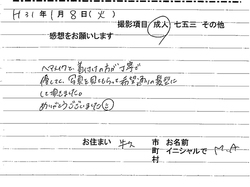 H31年1月8日(火)
撮影項目 成人 七五三 その他
感想をお願いします
ヘアメイクで、着付けの方が丁寧で
優しくて、写真を見てもらって希望通りの髪型に
して頂きました。
ありがとうございました
お住まい 牛久 市町村 お名前 イニシャルで M.A